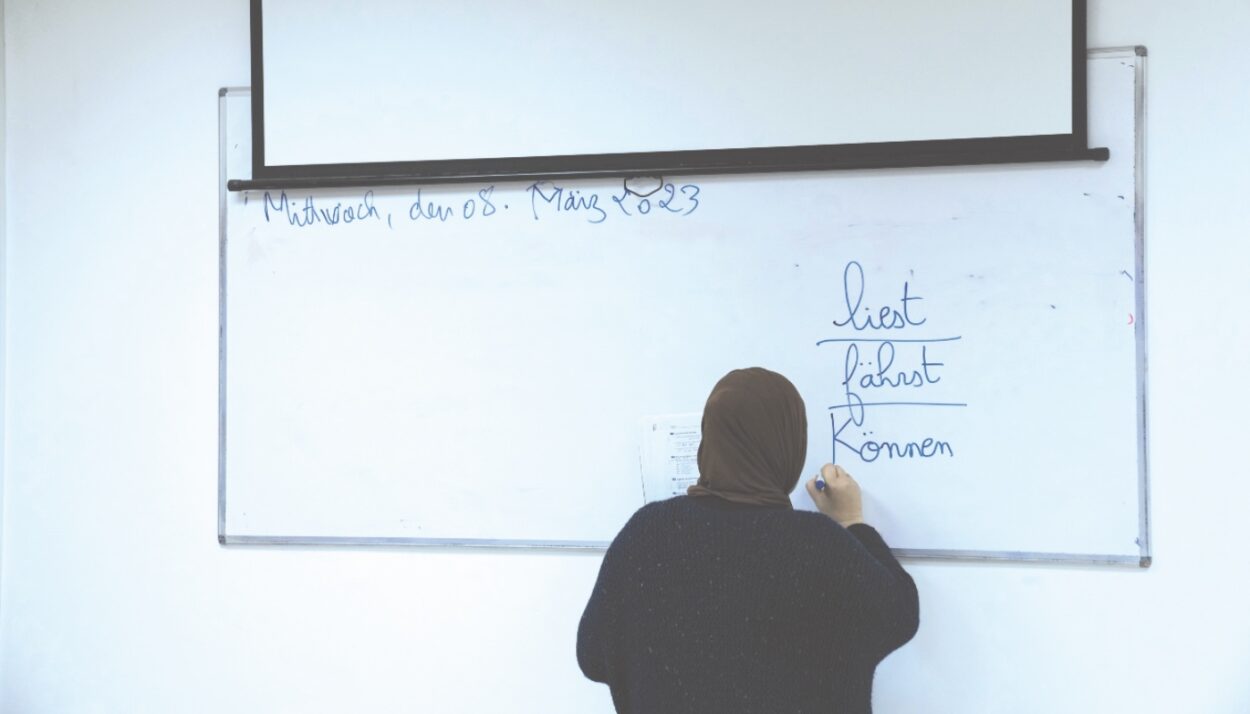 Mittwoch, den 08. März 2023
liest
fährst
Können